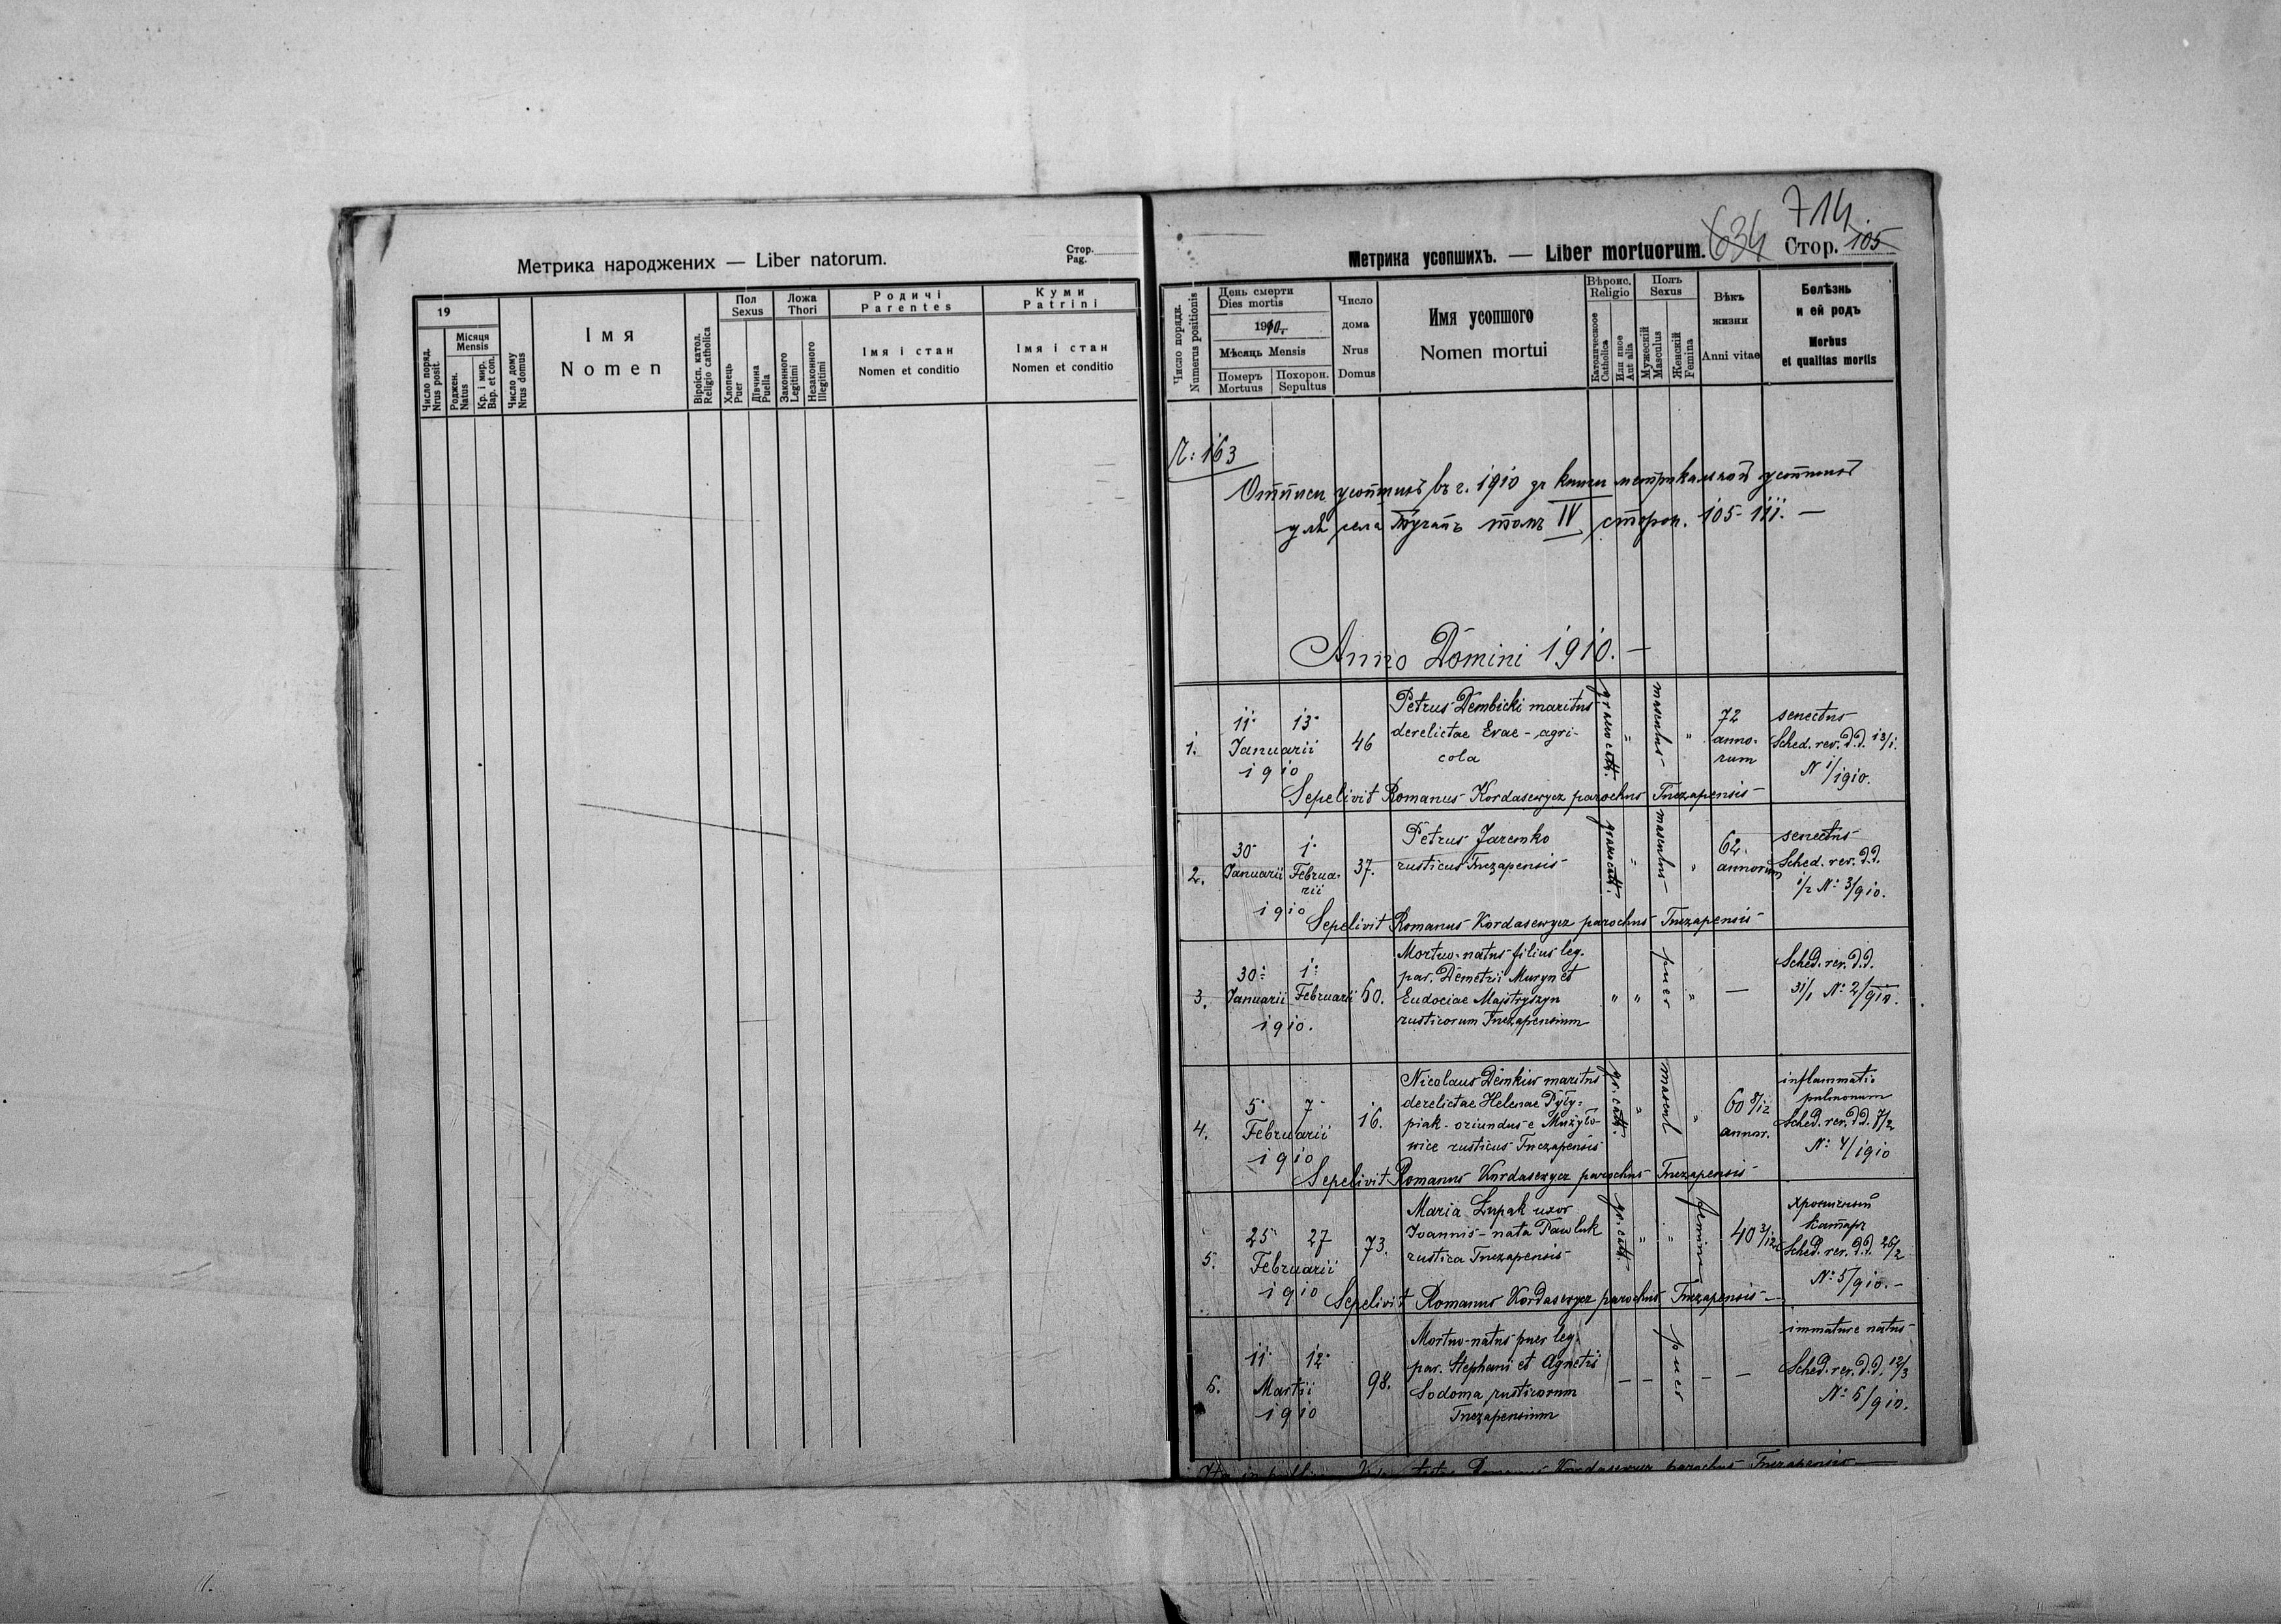 Метрика народжених — Liber natorum.
Стор.
Pag.
19
Число поряд.
Nrus posit
Місяця
Mensis
Роджен.
Natus
Кр. і мир.
Bap. et con.
Число дому
Nrus domus
Імя
Nomen
Віроісп. катол.
Religio catholica
Пол
Sexus
Хлопець
Puer
Дівчина
Puella
Ложа
Thori
Законного
Legitimi
Незаконного
Illegitimi
Родичі
Parentes
Імя і стан
Nomen et conditio
Куми
Patrini
Імя і стан
Nomen et conditio
714
634
Метрика усопшихъ. — Liber mortuorum.
Стор. 105
Число порядк.
Numerus positionis
День смерти
Dies mortis
1910.
Мѣсяць Mensis
Померъ
Mortuus
Похорон.
Sepultus
Число
дома
Nrus
Domus
Имя усопшого
Nomen mortui
Вѣроис.
Religio
Католическоое
Catholica
Или иное
Aut alia
Полъ
Sexus
Мужескій
Masculus
Женскій
Femina
Вѣкъ
жизни
Anni vitae
Болѣзнь
и ей родъ
Morbus
et qualitas mortis
163
1910
IV сторон. 105-111. —
Anno Domini 1910. —
1.
11 13
Januarii
1910
46
Petrus Dembicki maritus
derelictae Evae - agri-
cola
graeco cath.
"
masculus
"
72
anno-
rum
senectus
Sched. rev. d.d. 13/1.
N 1/1910.
Sepelivit Romanus Kordasewycz parochus Tuczapensis
2.
30 1
Januarii Februa-
rii
1910
37.
Petrus Jaremko
rusticus Tuczapensis
graeco cath.
"
masculus
"
62
annorum
senectus
Sched. rev. d.d.
1/2 N: 3/910.
Sepelivit Romanus Kordasewycz parochus Tuczapensis
3.
30 1
Januarii Februarii
1910.
60.
Mortuo-natus filius leg.
par. Demetrii Muryn et
Eudociae Majstryszyn
rusticorum Tuczapensium
" "
puer
"
—
Sched. rev. d.d.
31/1 N: 2/910.
4.
5 7
Februarii
1910
16.
Nicolaus Demkiw maritus
derelictae Helenae Pyły-
piak - oriundus e Mużyło-
wice rusticus Tuczapensis
gr. cath.
"
mascul
"
60 8/12
annor.
inflammatio
pulmonum
Sched. rev. d.d. 7/2
N: 4/1910
Sepelivit Romanus Kordasewycz parochus Tuczapensis
5.
25 27
Februarii
1910
73.
Maria Łupak uxor
Joannis - nata Pawluk
rustica Tuczapensis
gr. cath.
" "
femina
40 3/12
хроничный
катаръ
Sched. rev. d.d. 26/2
N: 5/910. -
Sepelivit Romanus Kordasewycz parochus Tuczapensis —
6.
11 12
Martii
1910
98.
Mortuo-natus puer leg.
par. Stephani et Agnetis
Sodoma rusticorum
Tuczapensium
— —
puer
— —
immature natus
Sched. rev. d.d. 12/3
N: 6/910.
Romanus Kordasewycz parochus Tuczapensis —